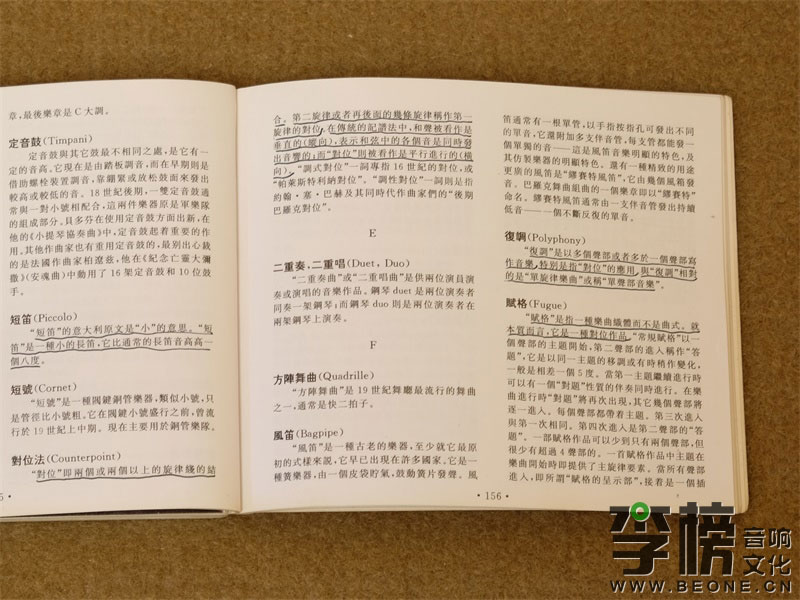 章,最後樂章是C大調。
定音鼓(Timpani)
定音鼓與其它鼓最不相同之處,是它有一
定的音高。它現在是由踏板調音,而在早期則是
借助螺栓裝置調音,靠綳緊或放松鼓面來發出
較高或較低的音。18世紀後期,一雙定音鼓通
常與一對小號相配合,這兩件樂器原是軍樂隊
的組成部分。貝多芬在使用定音鼓方面出新,在
他的《小提琴協奏曲》中,定音鼓起着重要的作
用。其他作曲家也有重用定音鼓的,最别出心裁
的是法國作曲家柏遼兹,他在《紀念亡靈大彌
撒》(安魂曲)中動用了16架定音鼓和10位鼓
手。
短笛(Piccolo)
“短笛”的意大利原文是“小”的意思。“短
笛”是一種小的長笛,它比通常的長笛音高高一
個八度。
短號(Cornet)
“短號”是一種閥鍵銅管樂器,類似小號,只
是管徑比小號粗。它在閥鍵小號盛行之前,曾流
行於19世紀上中期。現在主要用於銅管樂隊。
對位法(Counterpoint)
“對位”即兩個或兩個以上的旋律綫的結
合。第二旋律或者再後面的幾條旋律稱作第一
旋律的對位,在傳統的記譜法中,和聲被看作是
垂直的(縱向),表示和弦中的各個音是同時發
出音響的;而“對位”則被看作是平行進行的(横
向)。“調式對位”一詞專指16世紀的對位,或
“帕萊斯特利納對位”。“調性對位”一詞則是指
約翰·塞·巴赫及其同時代作曲家們的“後期
巴羅克對位”。
E
二重奏,二重唱(Duet,Duo)
“二重奏曲”或“二重唱曲”是供兩位演員演
奏或演唱的音樂作品。鋼琴duet是兩位演奏者
同奏一架鋼琴;而鋼琴duo則是兩位演奏者在
兩架鋼琴上演奏。
F
方陣舞曲(Quadrille)
“方陣舞曲”是19世紀舞廳最流行的舞曲
之一,通常是快二拍子。
風笛(Bagpipe)
“風笛”是一種古老的樂器,至少就它最原
初的式樣來説,它早已出現在許多國家。它是一
種簧樂器,由一個皮袋貯氣,鼓動簧片發聲。風
笛通常有一根單管,以手指按指孔可發出不同
的單音,它還附加多支伴音管,每支管都能發一
個單獨的音——這是風笛音樂明顯的特色,及
其仿製樂器的明顯特色。還有一種精致的用途
更廣的風笛是“繆賽特風笛”,它由幾個風箱發
音。巴羅克舞曲組曲的一個樂章即以“繆賽特”
命名。繆賽特風笛通常由一支伴音管發出持續
低音——一個不斷反復的單音。
復調(Polyphony)
“復調”是以多個聲部或者多於一個聲部寫
作音樂,特别是指“對位”的應用,與“復調”相對
的是“單旋律樂曲”或稱“單聲部音樂”。
賦格(Fugue)
“賦格”是指一種樂曲織體而不是曲式。就
本質而言,它是一種對位作品。“常規賦格”以一
個聲部的主題開始,第二聲部的進入稱作“答
題”,它是以同一主題的移調或有時稍作變化,
一般是相差一個5度。當第一主題繼續進行時
可以有一個“對題”性質的伴奏同時進行。在樂
曲進行時“對題”將再次出現,其它幾個聲部將
逐一進入。每個聲部都帶着主題。第三次進入
與第一次相同。第四次進入是第二聲部的“答
題”。一部賦格作品可以少到只有兩個聲部,但
很少有超過4聲部的。一首賦格作品中主題在
樂曲開始時即提供了主旋律要素。當所有聲部
進入,即所謂“賦格的呈示部”,接着是一個插
5·
·156·
李榜音响文化
WWW.BEONE.CN